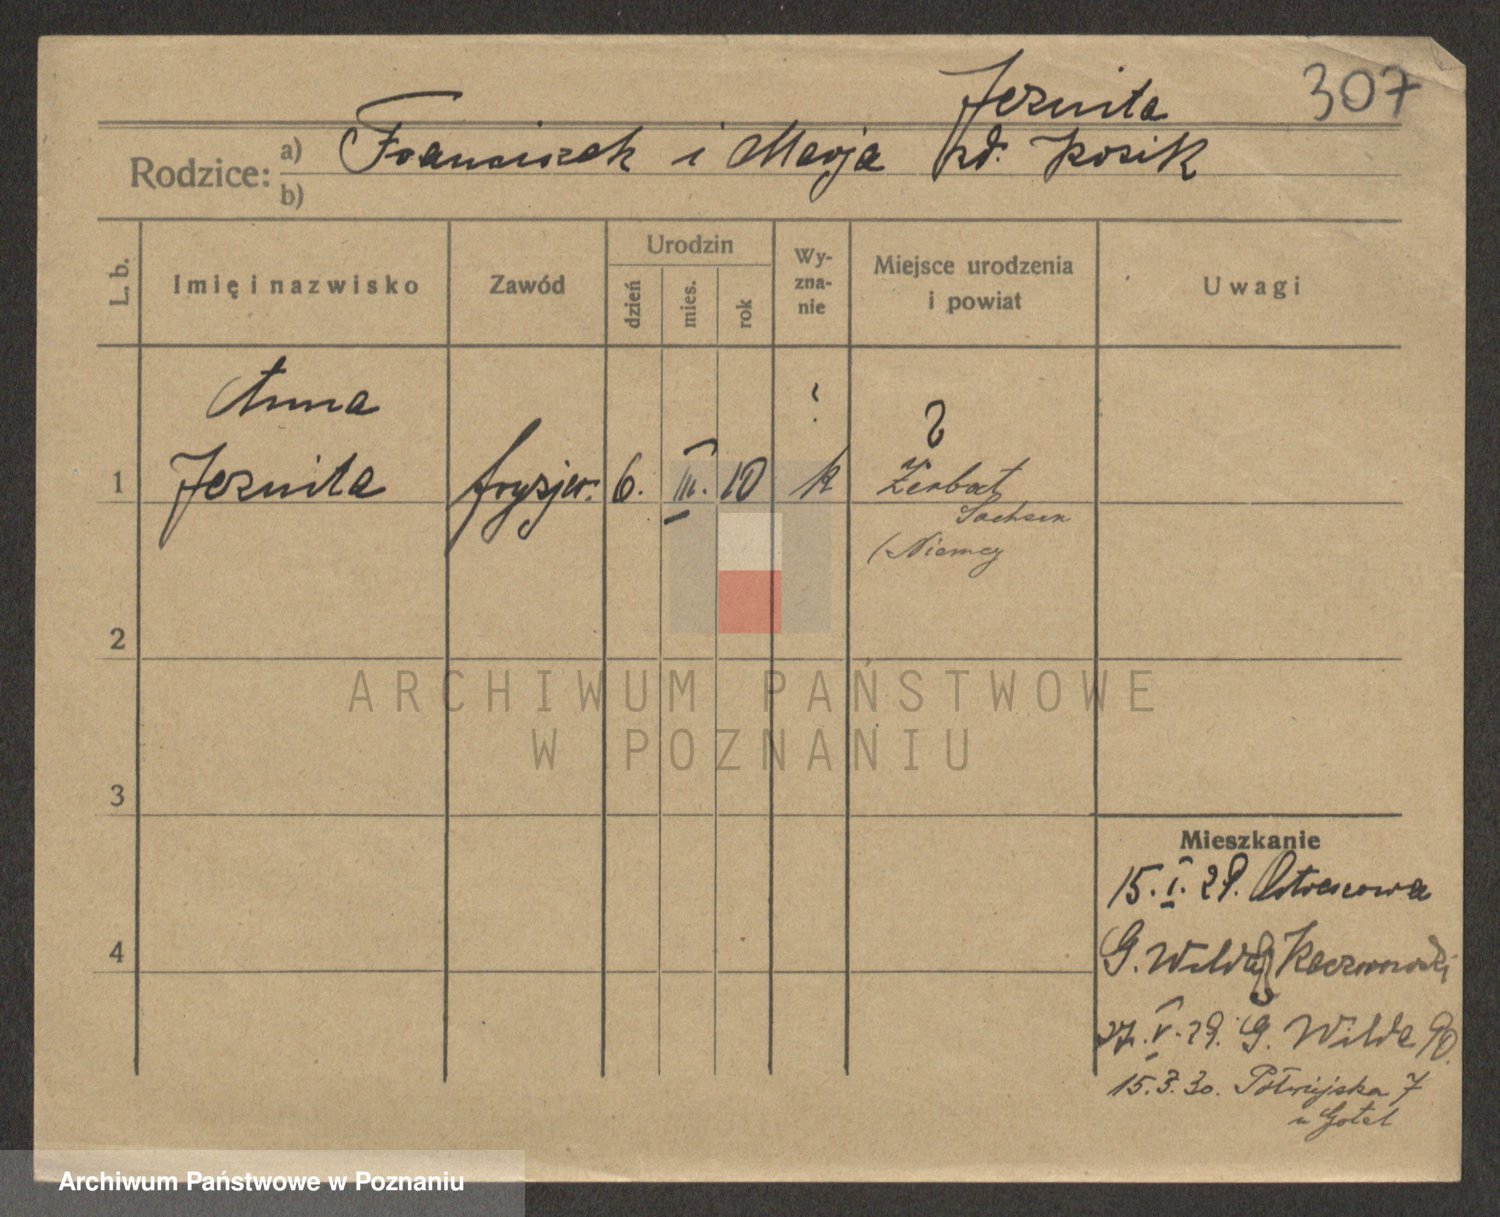 307
Jeznita
Rodzice: a) Franciszek i Marja zd. Kosik
b)
L. b.
Imię i nazwisko
Zawód
Urodzin
dzień
mies.
rok
Wy-
zna-
nie
Miejsce urodzenia
i powiat
Uwagi
Anna
?
?
1 Jeznita fryzjer. 6. III. 10 k Zerbst
Sachsen
(Niemcy
2
3
Mieszkanie
15.I.29.
4
G. Wilda
27.V.29. G. Wilda 90.
15.3.30. Półwiejska 7
u
ARCHIWUM PAŃSTWOWE
W POZNANIU
Archiwum Państwowe w Poznaniu